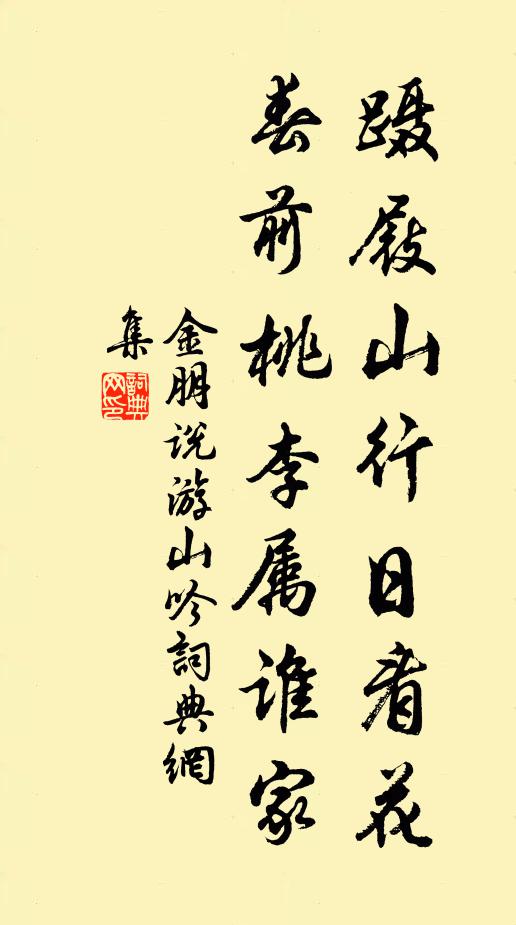 蹑屐山行日看花
春前桃李属谁家
金朋说游山吟詞典網
集
詞典网印